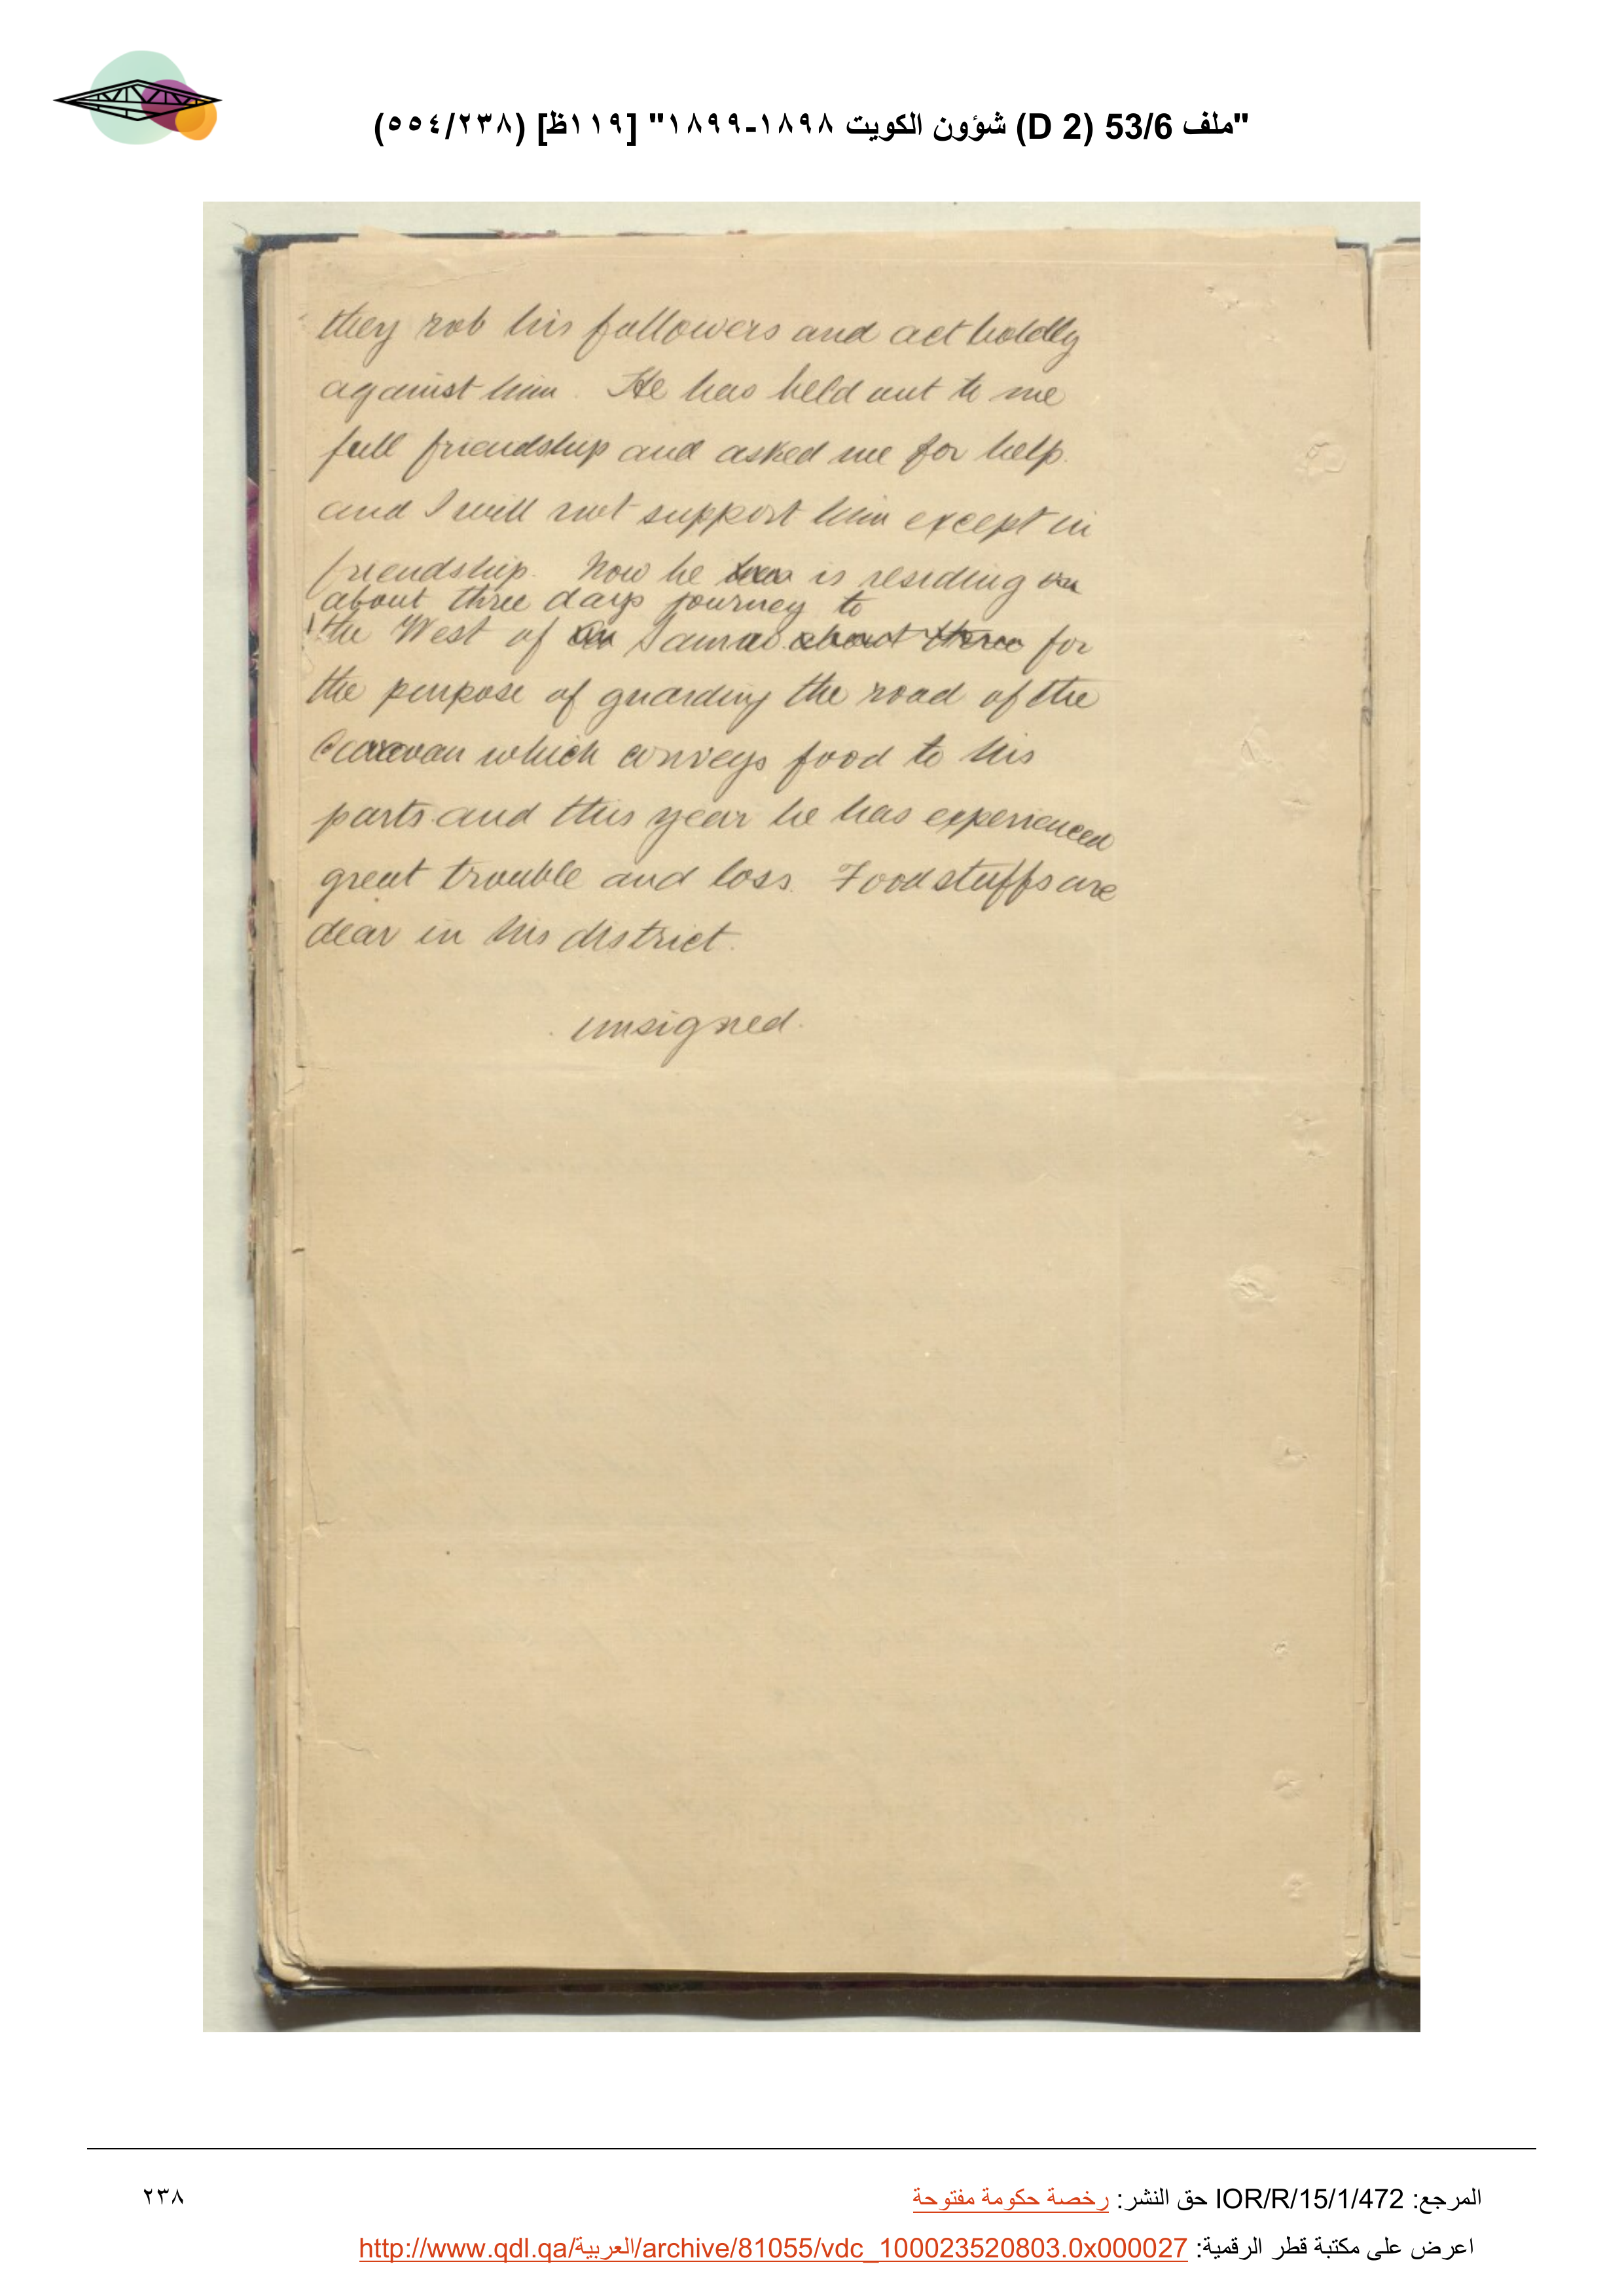 "ملف 53/6 (D 2) شؤون الكويت ١٨٩٨-١٨٩٩" [١١٩ظ] (٥٥٤/٢٣٨)
they rob his followers and act boldly
against him. He has held out to me
full friendship and asked me for help.
and I will not support him except in
friendship. Now he is residing
about three days journey to
the West of for
the purpose of guarding the road of the
Caravan which conveys food to his
parts and this year he has experienced
great trouble and loss. Foodstuffs are
dear in his district.
unsigned.
المرجع: IOR/R/15/1/472 حق النشر: رخصة حكومة مفتوحة
٢٣٨
اعرض على مكتبة قطر الرقمية: http://www.qdl.qa/العربية/archive/81055/vdc_100023520803.0x000027